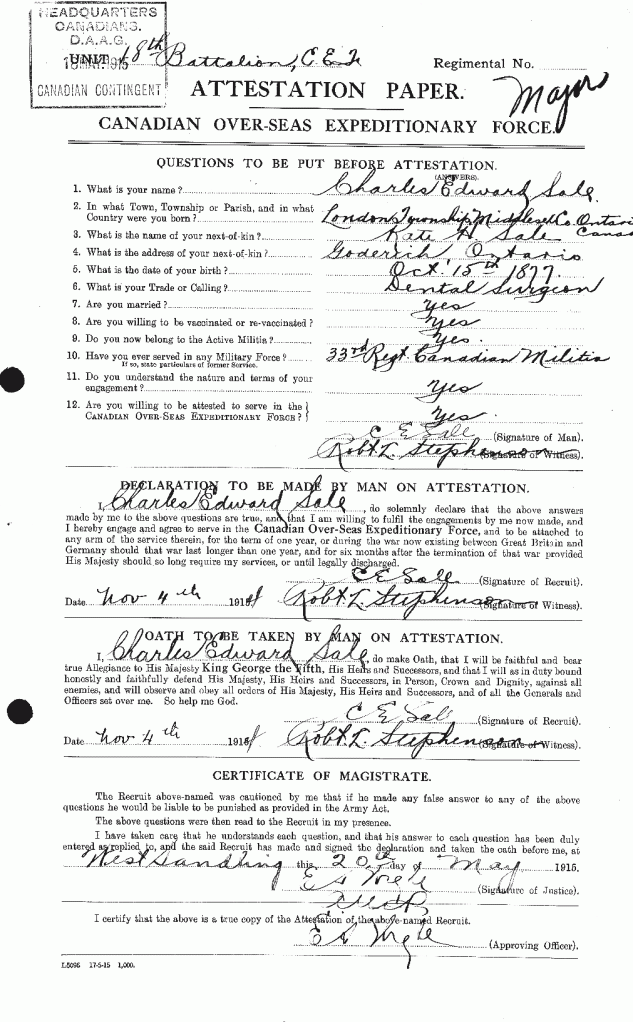 HEADQUARTERS
CANADIANS.
D.A.A.G.
CANADIAN CONTINGENT
UNIT 18th Battalion, C E F
Regimental No.
Major
ATTESTATION PAPER.
CANADIAN OVER-SEAS EXPEDITIONARY FORCE.
QUESTIONS TO BE PUT BEFORE ATTESTATION.
(ANSWERS).
1. What is your name? Charles Edward Sale.
2. In what Town, Township or Parish, and in what
Country were you born? London Township Middlesex Co. Ontario Canada
3. What is the name of your next-of-kin? Kate H Sale
4. What is the address of your next-of-kin? Goderich, Ontario
5. What is the date of your birth? Oct. 15th 1877.
6. What is your Trade or Calling? Dental Surgeon
7. Are you married? Yes
8. Are you willing to be vaccinated or re-vaccinated? Yes
9. Do you now belong to the Active Militia? Yes.
10. Have you ever served in any Military Force? 33rd Regt. Canadian Militia
If so, state particulars of former Service.
11. Do you understand the nature and terms of your
engagement? Yes
12. Are you willing to be attested to serve in the
CANADIAN OVER-SEAS EXPEDITIONARY FORCE? Yes.
C E Sale (Signature of Man)
Robt L Stephenson (Signature of Witness).
DECLARATION TO BE MADE BY MAN ON ATTESTATION.
I, Charles Edward Sale, do solemnly declare that the above answers
made by me to the above questions are true, and that I am willing to fulfil the engagements by me now made, and
I hereby engage and agree to serve in the Canadian Over-Seas Expeditionary Force, and to be attached to
any arm of the service therein, for the term of one year, or during the war now existing between Great Britain and
Germany should that war last longer than one year, and for six months after the termination of that war provided
His Majesty should so long require my services, or until legally discharged.
C E Sale (Signature of Recruit)
Date Nov 4th 1914 Robt L Stephenson (Signature of Witness).
OATH TO BE TAKEN BY MAN ON ATTESTATION.
I, Charles Edward Sale, do make Oath, that I will be faithful and bear
true Allegiance to His Majesty King George the Fifth, His Heirs and Successors, and that I will as in duty bound
honestly and faithfully defend His Majesty, His Heirs and Successors, in Person, Crown and Dignity, against all
enemies, and will observe and obey all orders of His Majesty, His Heirs and Successors, and of all the Generals and
Officers set over me. So help me God.
C E Sale (Signature of Recruit)
Date Nov 4th 1914 Robt L Stephenson (Signature of Witness)
CERTIFICATE OF MAGISTRATE.
The Recruit above-named was cautioned by me that if he made any false answer to any of the above
questions he would be liable to be punished as provided in the Army Act.
The above questions were then read to the Recruit in my presence.
I have taken care that he understands each question, and that his answer to each question has been duly
entered as replied to, and the said Recruit has made and signed the declaration and taken the oath before me, at
West Sandling this 20th day of May 1915.
(Signature of Justice)
I certify that the above is a true copy of the Attestation of the above-named Recruit.
(Approving Officer).
L.8096 17-5-15 1,000.